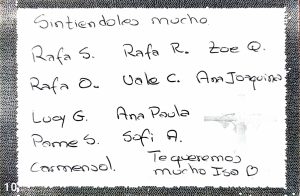 Sintiendolos mucho
Rafa S. Rafa R. Zoe Q.
Rafa O. Vale C. Ana Joaquina
Lucy G. Ana Paula
Pame S. Sofi A.
Carmensol. Te queremos
mucho Isa
10